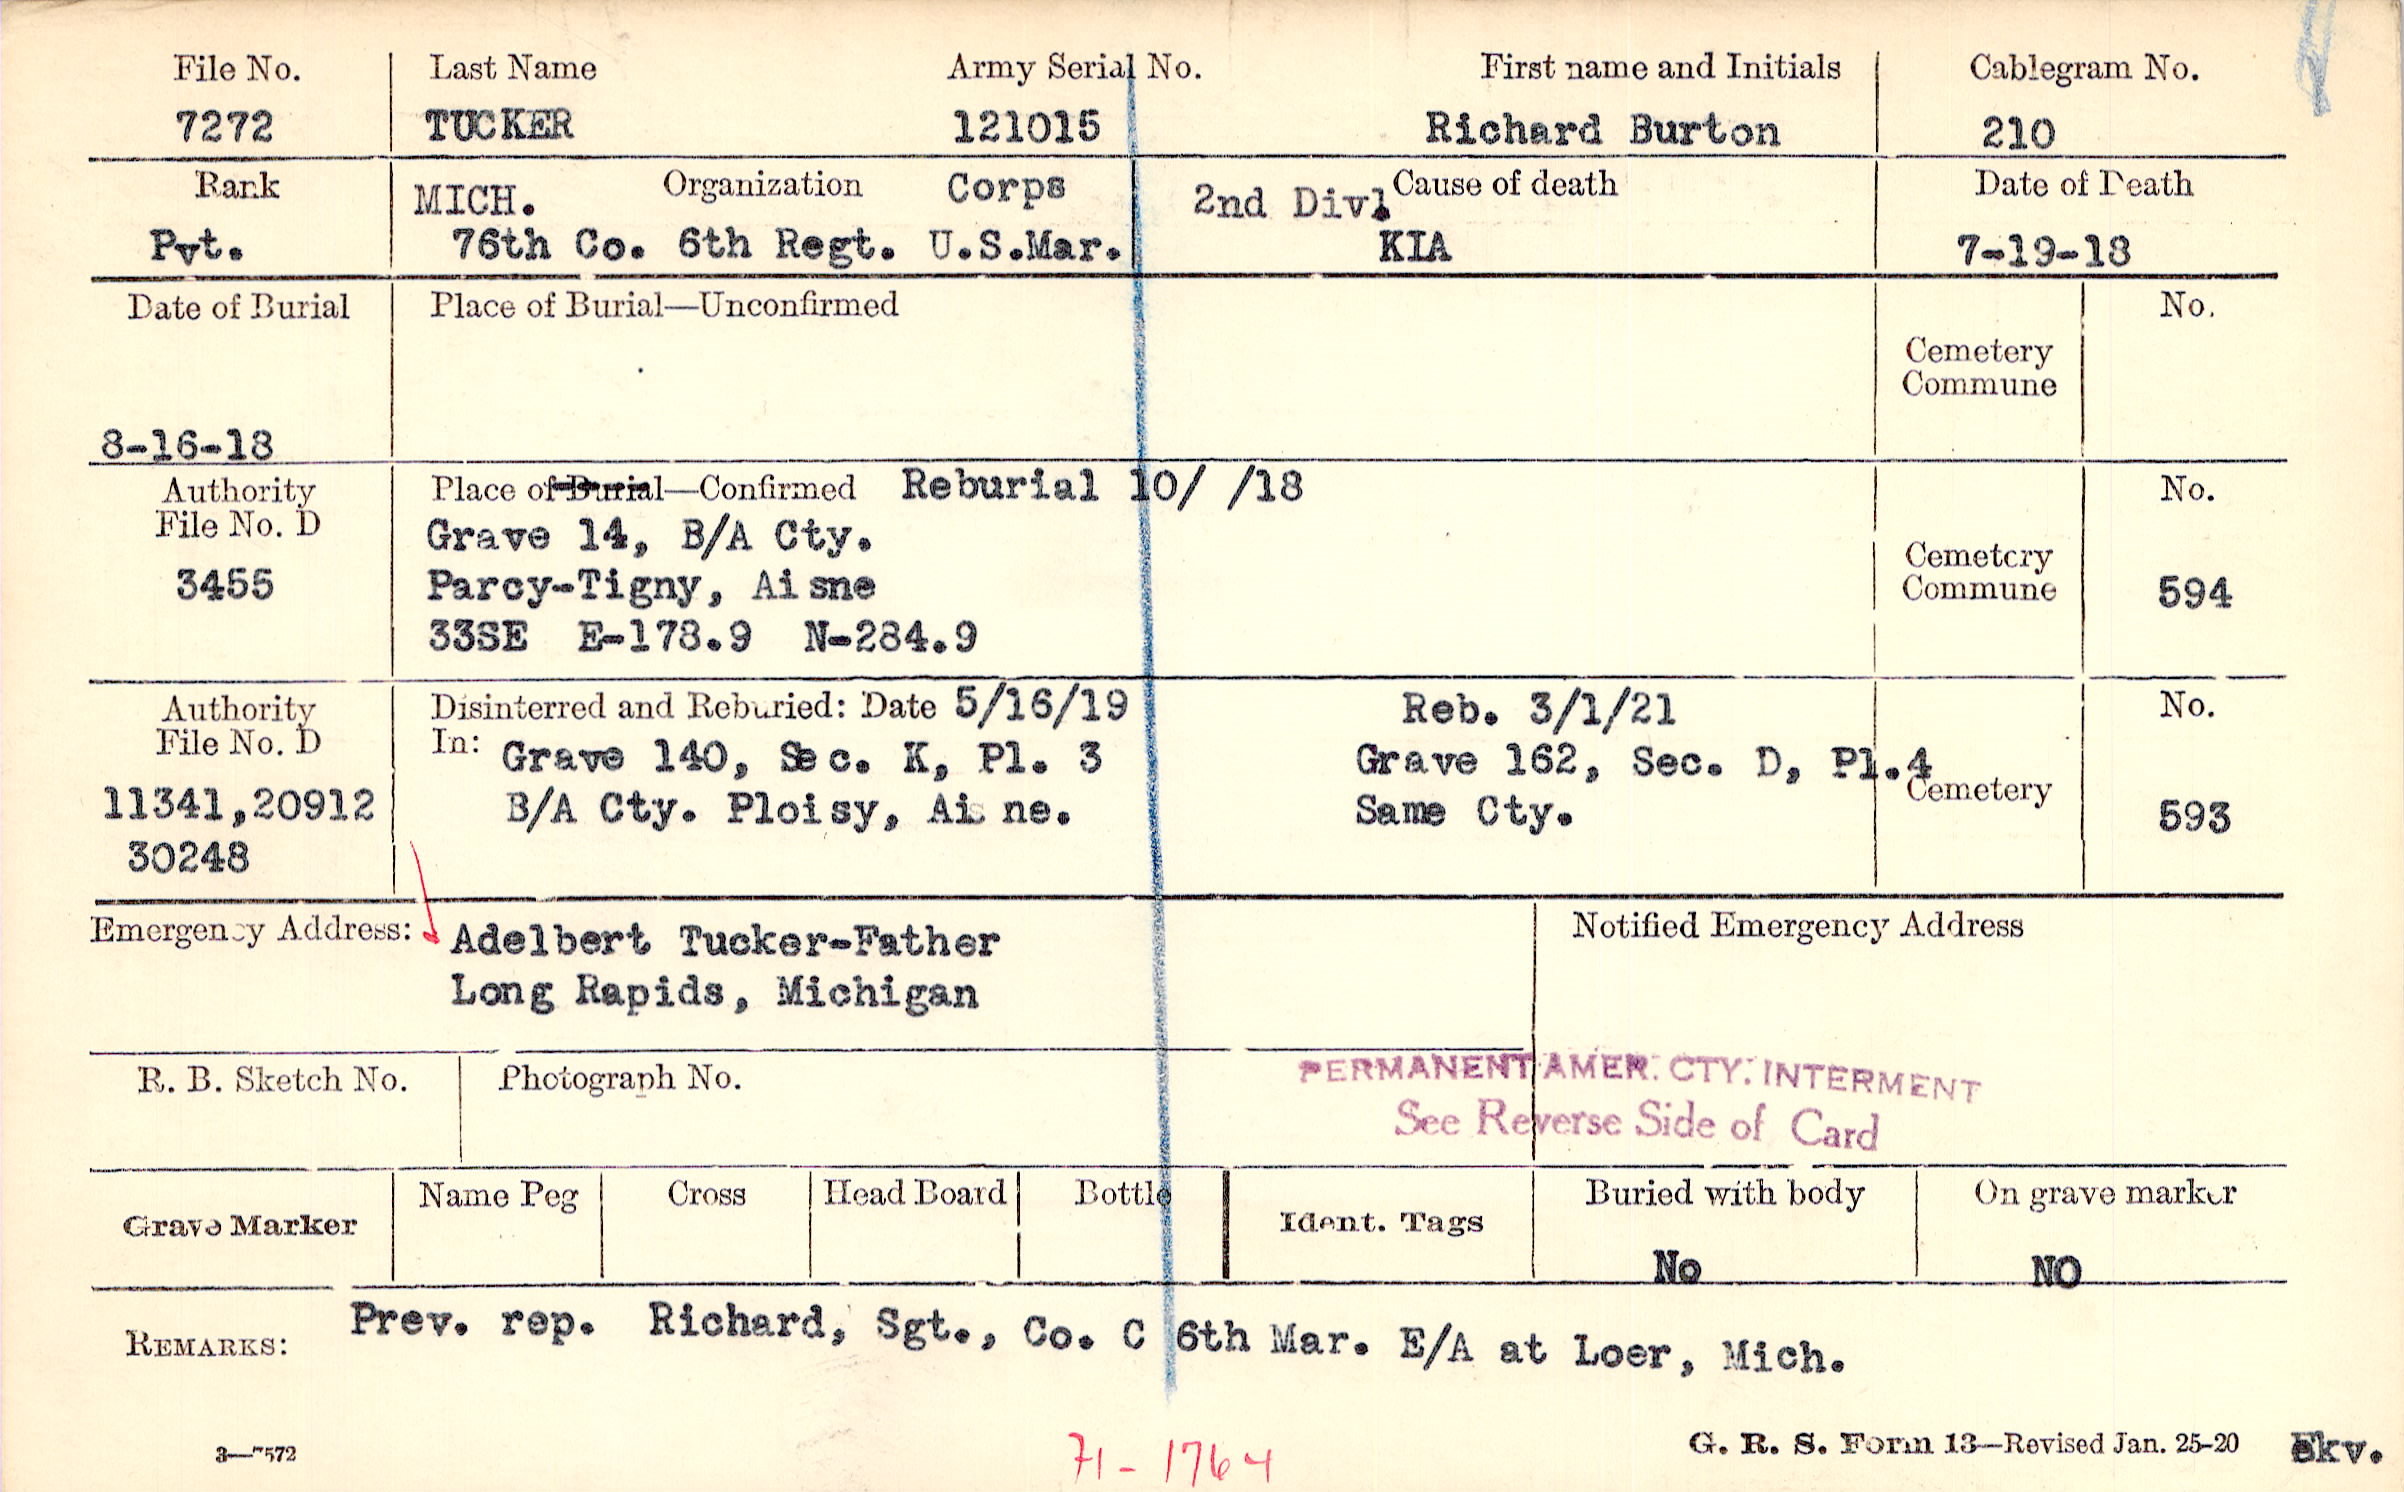 File No. Last Name Army Serial No. First name and Initials Cablegram No.
7272 TUCKER 121015 Richard Burton 210
Rank MICH. Organization Corps 2nd Div. Cause of death Date of Death
Pvt. 76th Co. 6th Regt. U.S.Mar. KIA 7-19-18
Date of Burial Place of Burial—Unconfirmed No.
Cemetery
Commune
8-16-18
Authority Place of Burial—Confirmed Reburial 10/ /18 No.
File No. D Grave 14, B/A Cty.
3455 Parcy-Tigny, Aisne Cemetery
Commune 594
33SE E-178.9 N-284.9
Authority Disinterred and Reburied: Date 5/16/19 Reb. 3/1/21 No.
File No. D In: Grave 140, Sec. K, Pl. 3 Grave 162, Sec. D, Pl.4
11341,20912 B/A Cty. Ploisy, Aisne. Same Cty. Cemetery 593
30248
Emergency Address: Adelbert Tucker-Father Notified Emergency Address
Long Rapids, Michigan
R. B. Sketch No. Photograph No. PERMANENT AMER. CTY. INTERMENT
See Reverse Side of Card
Grave Marker Name Peg Cross Head Board Bottle Ident. Tags Buried with body On grave marker
No NO
REMARKS: Prev. rep. Richard, Sgt., Co. C 6th Mar. E/A at Loer, Mich.
3—7572 71-1764 G. R. S. Form 13—Revised Jan. 25-20 kv.